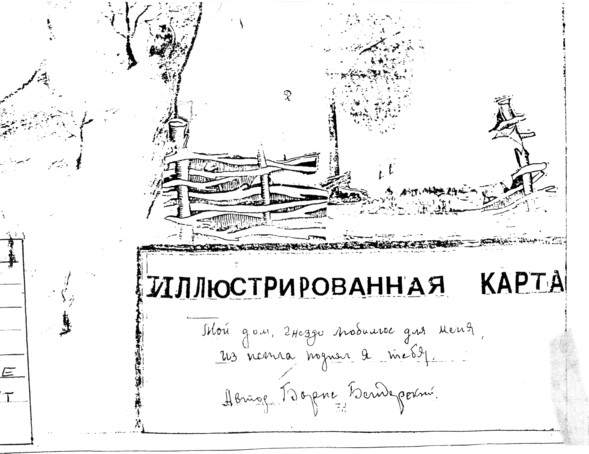 ИЛЛЮСТРИРОВАННАЯ КАРТА
Мой дом, гнездо любимое для меня,
из пепла поднял я тебя.
Автор Борис Бендерский.
Е
Т